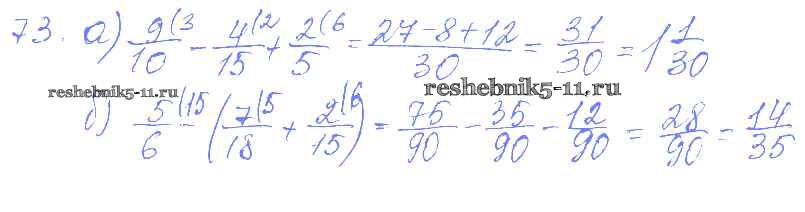 73. а) 9(3/10 - 4(2/15 + 2(6/5 = 27-8+12/30 = 31/30 = 1 1/30
reshebnik5-11.ru reshebnik5-11.ru
б) 5(15/6 - (7(5/18 + 2(6/15) = 75/90 - 35/90 - 12/90 = 28/90 = 14/35